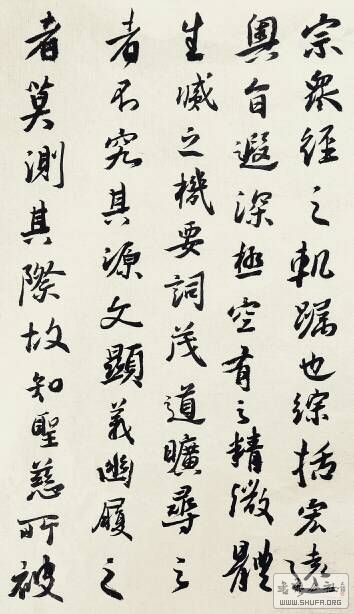 宗衆經之軌躅也綜括宏遠
奧旨遐深極空有之精微體
生滅之機要詞茂道曠尋之
者不究其源文顯義幽履之
者莫測其際故知聖慈所被
WWW.SHUFA.ORG